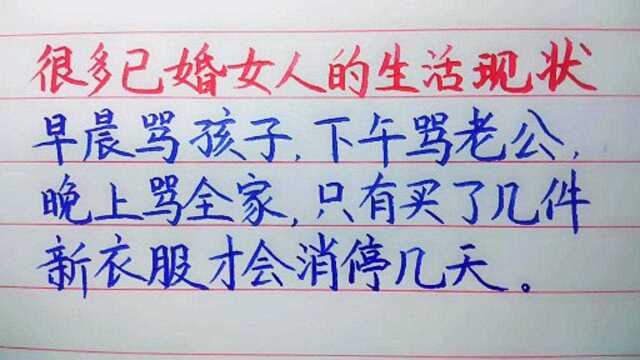 很多已婚女人的生活现状
早晨骂孩子,下午骂老公,
晚上骂全家,只有买了几件
新衣服才会消停几天。